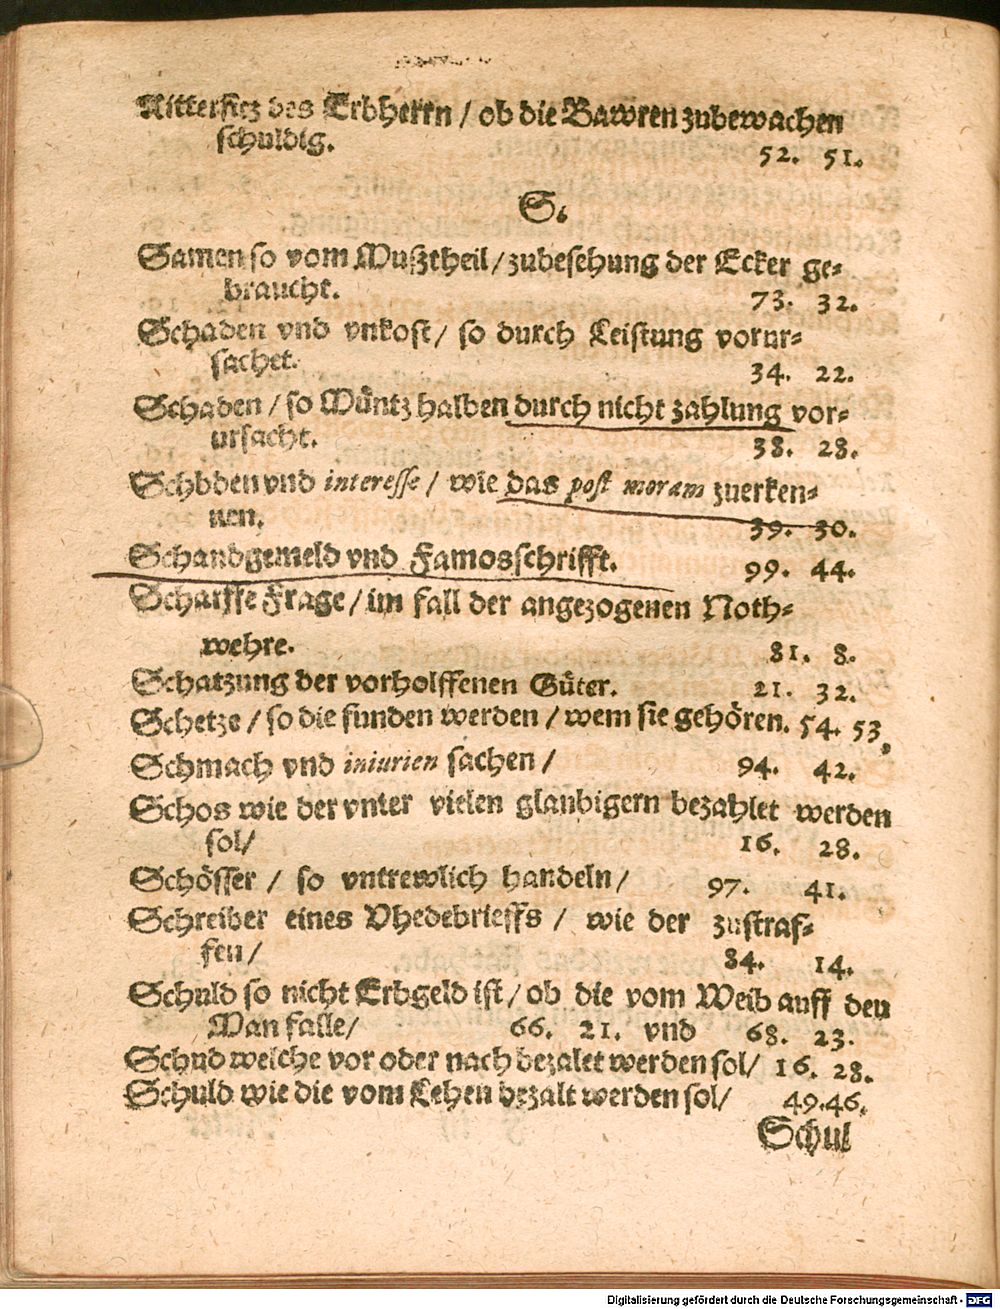 Rittersitz des Erbherrn / ob die Bawren zubewachen
schuldig. 52. 51.
S.
Samen so vom Mußtheil / zubesehung der Ecker ge-
braucht. 73. 32.
Schaden vnd vnkost / so durch Leistung vorur-
sachet. 34. 22.
Schaden / so Müntz halben durch nicht zahlung vor-
ursacht. 38. 28.
Schdden vnd interesse / wie das post moram zuerken-
nen. 39. 30.
Schandgemeld vnd Famosschrifft. 99. 44.
Scharffe Frage / im fall der angezogenen Noth-
wehre. 81. 8.
Schatzung der vorholffenen Güter. 21. 32.
Schetze / so die funden werden / wem sie gehören. 54. 53,
Schmach vnd iniurien sachen / 94. 42.
Schos wie der vnter vielen glaubigern bezahlet werden
sol / 16. 28.
Schösser / so vntrewlich handeln / 97. 41.
Schreiber eines Vhedebrieffs / wie der zustraf-
fen / 84. 14.
Schuld so nicht Erbgeld ist / ob die vom Weib auff den
Man falle / 66. 21. vnd 68. 23.
Schud welche vor oder nach bezalet werden sol / 16. 28.
Schuld wie die vom Lehen bezalt werden sol / 49. 46.
Schul
Digitalisierung gefördert durch die Deutsche Forschungsgemeinschaft - DFG